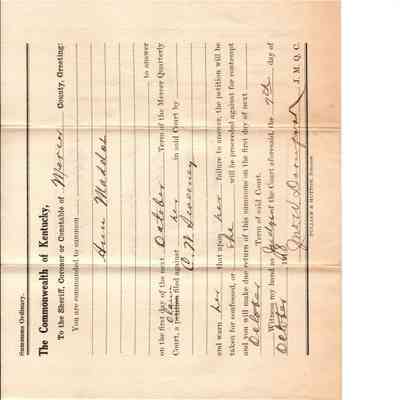 Summons Ordinary.
The Commonwealth of Kentucky,
To the Sheriff, Coroner or Constable of Mercer County, Greeting:
You are commanded to summon
Ann Maddox
to answer
on the first day of the next October Term of the Mercer Quarterly
Claim
Court, a petition filed against her in said Court by
C. M. Sweeney
and warn her that upon her failure to answer, the petition will be
taken for confessed, or she will be proceeded against for contempt
and you will make due return of this summons on the first day of next
October Term of said Court.
Witness my hand as Judge of the Court aforesaid, the 7th day of
October 1918
J. M. Q. C.